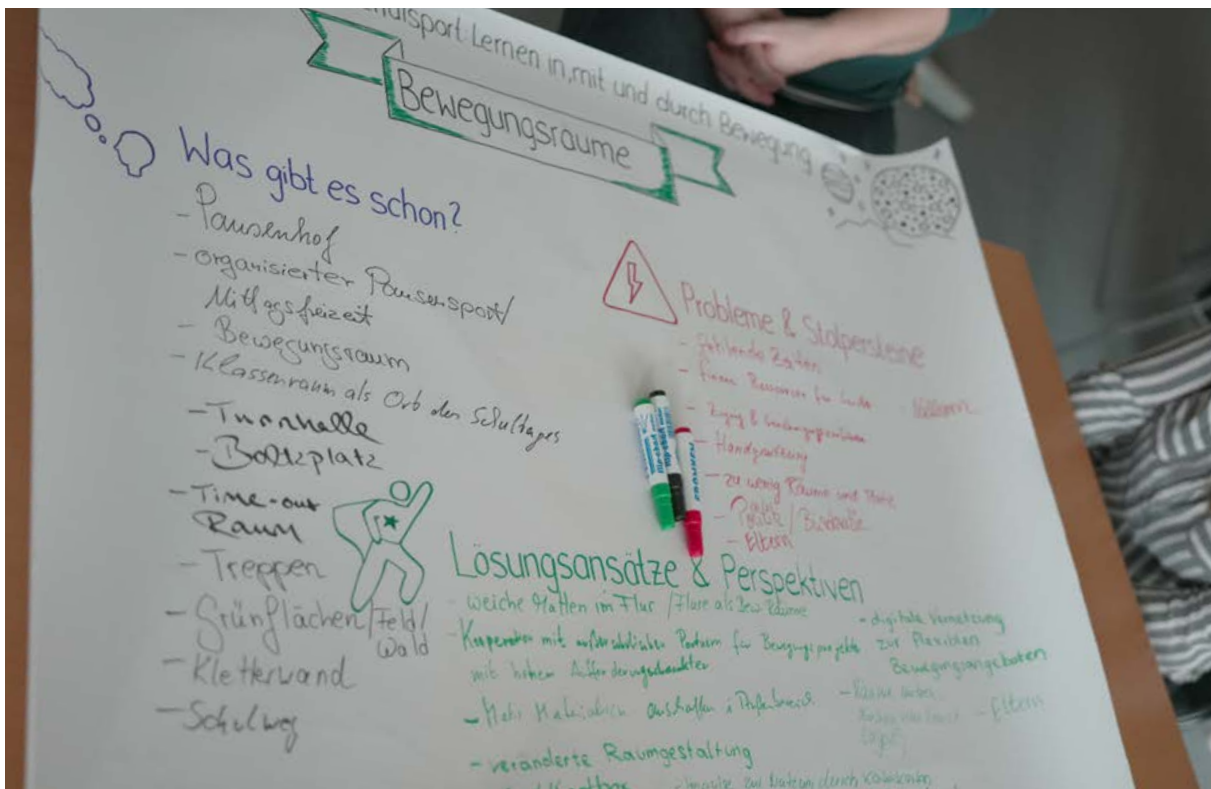 Lernen in, mit und durch Bewegung
Bewegungsräume
Was gibt es schon?
- Pausenhof
- organisierter Pausensport/
Mittagsfreizeit
- Bewegungsraum
- Klassenraum als Ort des Schultages
- Turnhalle
- Bolzplatz
- Time-out
Raum
- Treppen
- Grünflächen/Feld/
Wald
- Kletterwand
- Schulweg
Probleme & Stolpersteine
- fehlende Zeiten
- Ressourcen für
- Handynutzung
- zu wenig Räume und
- Politik/
- Eltern
Lösungsansätze & Perspektiven
- weiche Matten im Flur / Flure als Bew. Räume
- Kooperation mit außerschulischen Partnern für Bewegungsprojekte
mit hohem Aufforderungscharakter
- Mehr Materialien
- veränderte Raumgestaltung
- digitale Vernetzung
zur flexiblen
Bewegungsangeboten
- Eltern